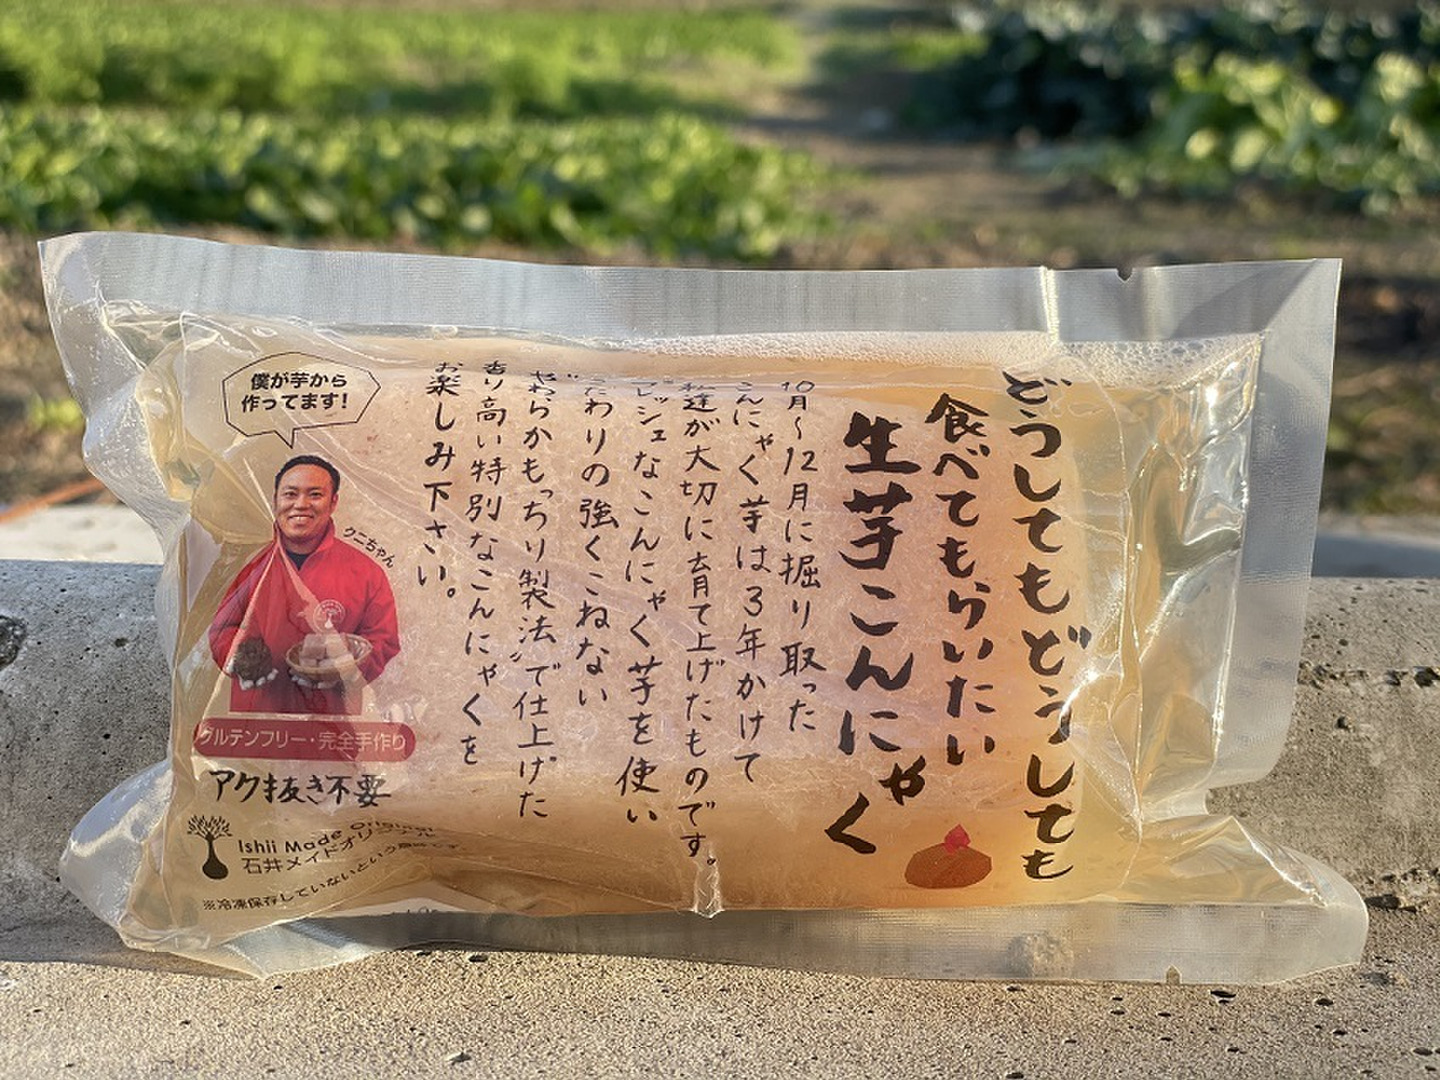 どうしてもどうしても
食べてもらいたい
生芋こんにゃく
10月〜12月に掘り取った
こんにゃく芋は3年かけて
私達が大切に育て上げたものです。
フレッシュなこんにゃく芋を使い
こだわりの強くこねない
やわらかもっちり製法"で仕上げた
香り高い特別なこんにゃくを
お楽しみ下さい。
僕が芋から
作ってます!
クニちゃん
グルテンフリー・完全手作り
アク抜き不要
Ishii Made Original
石井メイドオリジナル
※冷凍保存していないという意味です